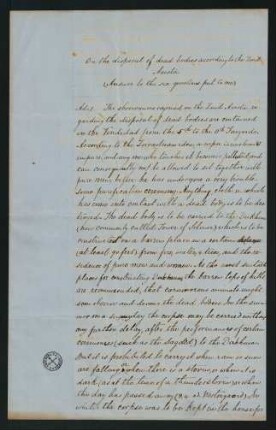 On the disposal of dead bodies according to the Zend
Avesta
(Answer to the six questions put to me)
Ad 1. The observances enjoined in the Zend Avesta re
garding the disposal of dead bodies are contained
in the Vendidad from the 5th to the 9th Fargards.
According to the Zoroastrian idea, a corpse is in a state
impure, and any one who touches it becomes polluted and
can consequently not be allowed to sit together with
pure men before he has undergone a very trouble
some purification ceremony. Anything, cloth &c which
has come into contact with a dead body is to be des
troyed. The dead body is to be carried to the Dakhma
(now commonly called Tower of Silence) which is to be
constructed on a barren place in a certain distance
(at least 90 feet) from fire, water, and the re
sidence of pure men and women. As the most suitable
places for constructing Dakhmas the barren tops of hills
are recommended, that carnivorous animals might
soon observe and devour the dead bodies. In the sum
mer or on a sunny day the corpse may be carried without
any further delay, after the performance of certain
ceremonies (such as the Sagdid) to the Dakhma.
But it is prohibited to carry it when rain or snow
are falling, when there is a storm, or when it is
dark, (as at the time of a thunderstorm) or when
this day has passed away
winter the corpse was to be kept in the house for